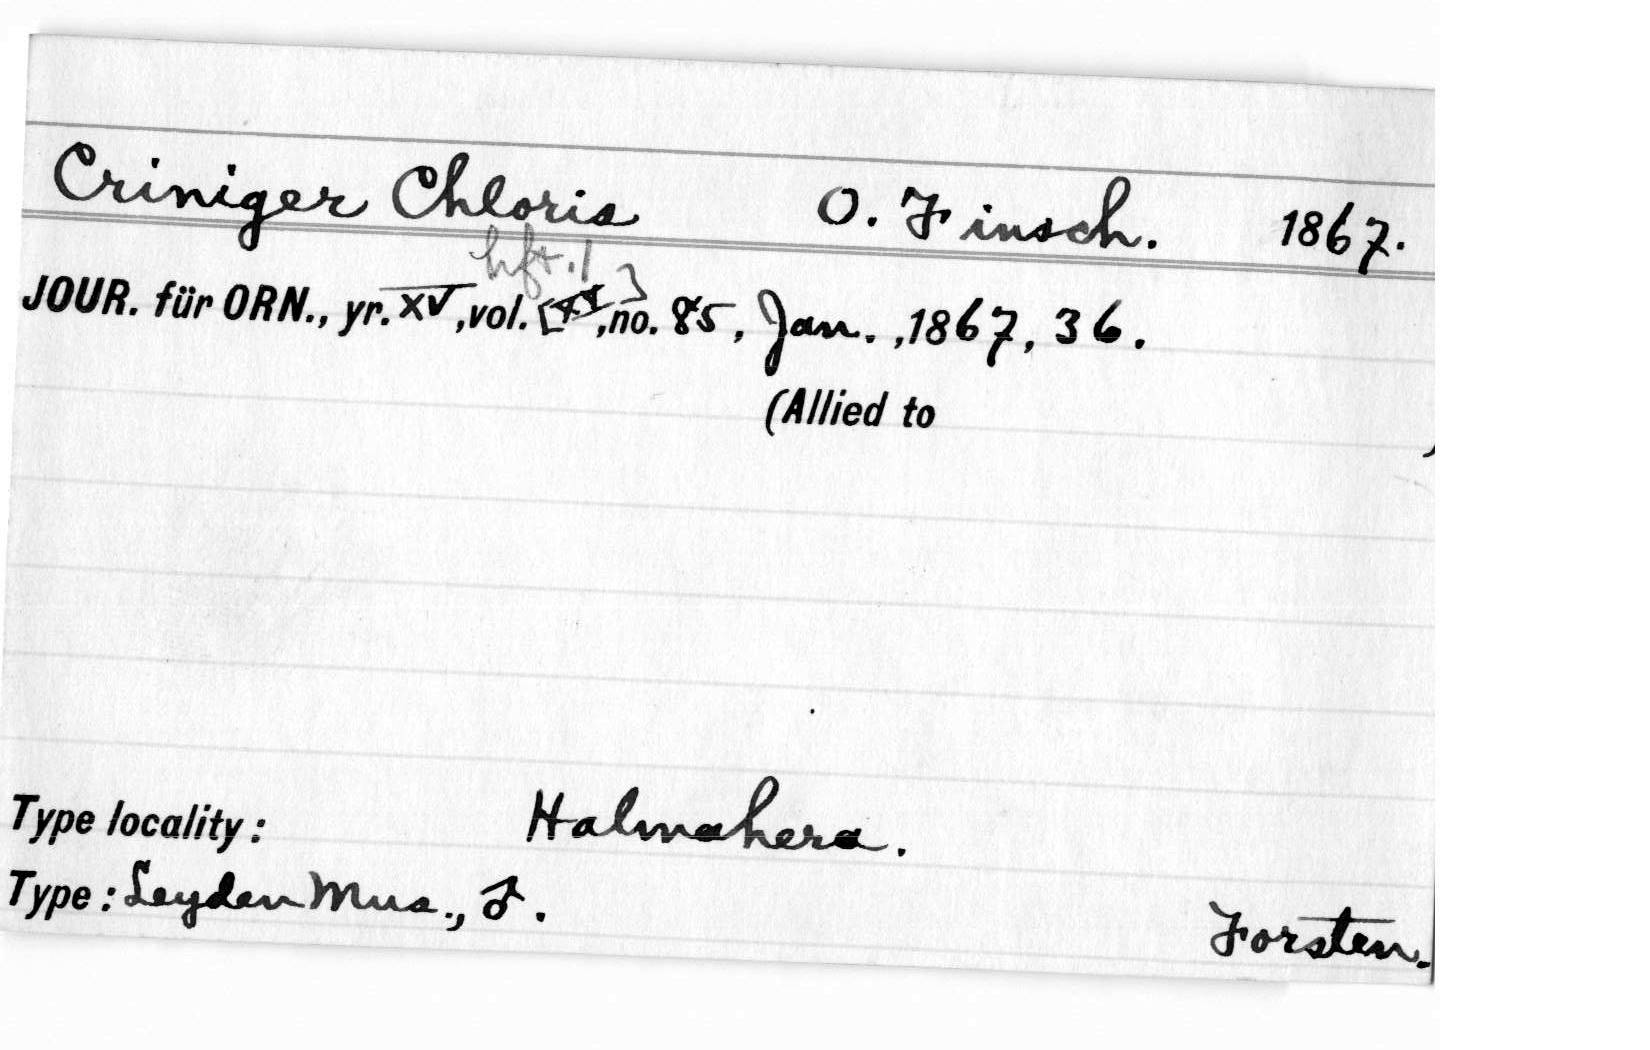 Criniger Chloris O. Finsch. 1867.
hft. 1
JOUR. für ORN., yr. XV, vol. [XV], no. 85, Jan., 1867, 36.
(Allied to )
Type locality: Halmahera.
Type: Leyden Mus., ♂.
Forsten.